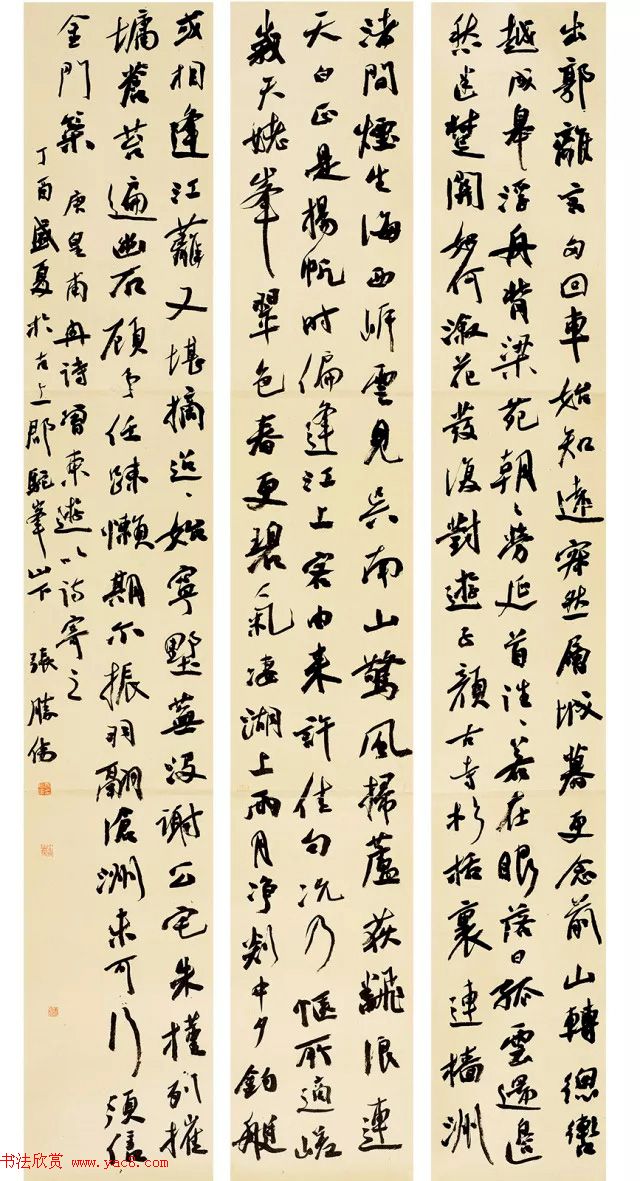 出郭離言多回車始知遠寂然層城暮更念前山轉總轡
越成皋浮舟背梁苑朝〻勞延首往〻若在眼落日孤雲還邊
愁迷楚關如何淑花發復對遊子顏古寺杉栝裏連檣洲
渚間煙生海西岸雲見吳南山驚風掃蘆荻翻浪連
天白正是揚帆時偏逢江上客由來許佳句況乃愜所適嵯
峨天姥峯翠色春更碧氣淒湖上雨月淨剡中夕釣艇
或相逢江蘺又堪摘迢〻始寧墅蕪沒謝公宅朱槿列摧
墉蒼苔遍幽石顧予任疎懶期尔振羽翮滄洲未可行須信
金門策 唐皇甫冉詩曾東遊以詩寄之
丁酉盛夏於古上郡駝峯山下 張勝偉
书法欣赏 www.yac8.com